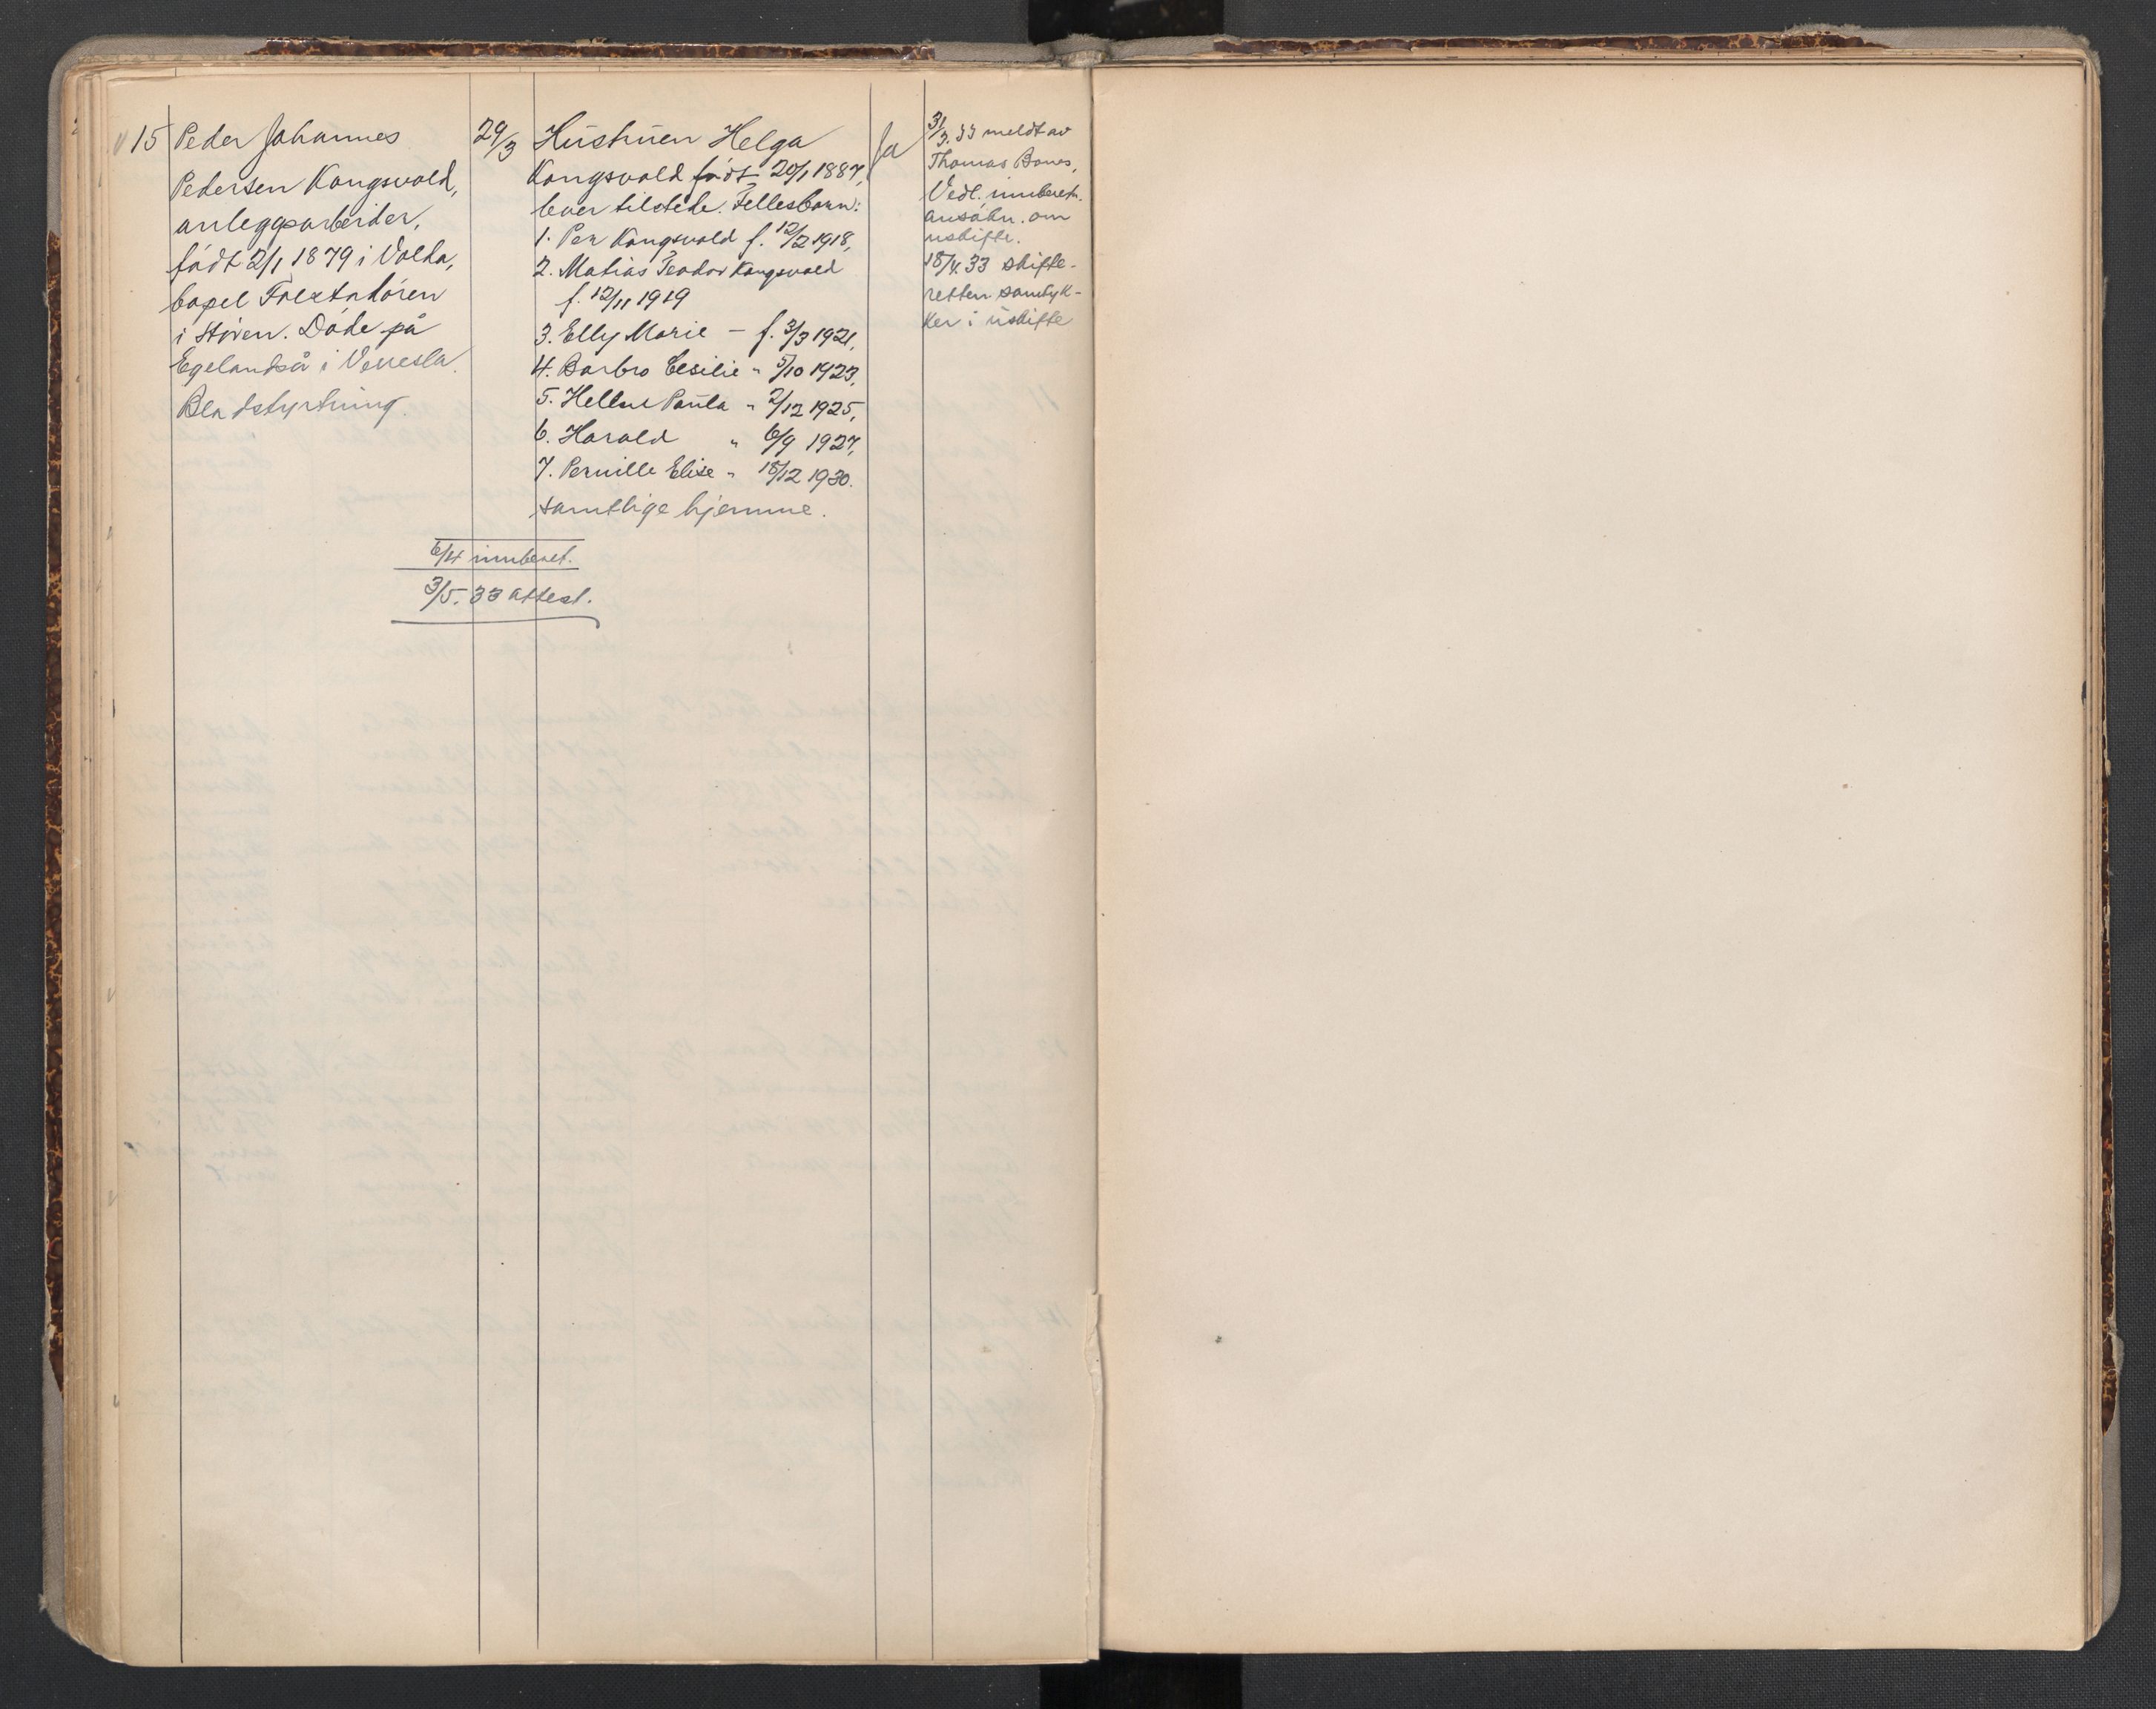 15
Peder Johannes
Pedersen Kongsvold,
anleggsarbeider,
født 2/1 1879 i Volda,
bopel
i Støren. Døde på
Egelandså i Vennesla.
Blodstyrtning.
29/3
Hustruen Helga
Kongsvold født 20/1 1887,
bour tilstede. Fellesbarn:
1. Per Kongsvold f. 12/2 1918,
2. Matias Teodor Kongsvold
f. 12/11 1919
3. Elly Marie — f. 3/3 1921,
4. Barbro Cesilie " 5/10 1923,
5. Helene Paula " 2/12 1925,
6. Harald " 6/9 1927,
7. Pernille Elise " 18/12 1930.
samtlige hjemme.
Ja
31/3.33 meldt av
Thomas Bones,
Vedl. innberetn.
ansøkn. om
uskifte.
18/4.33 skifte-
retten samtyk-
ker i uskifte
6/4 innberet.
3/5. 33 attest.